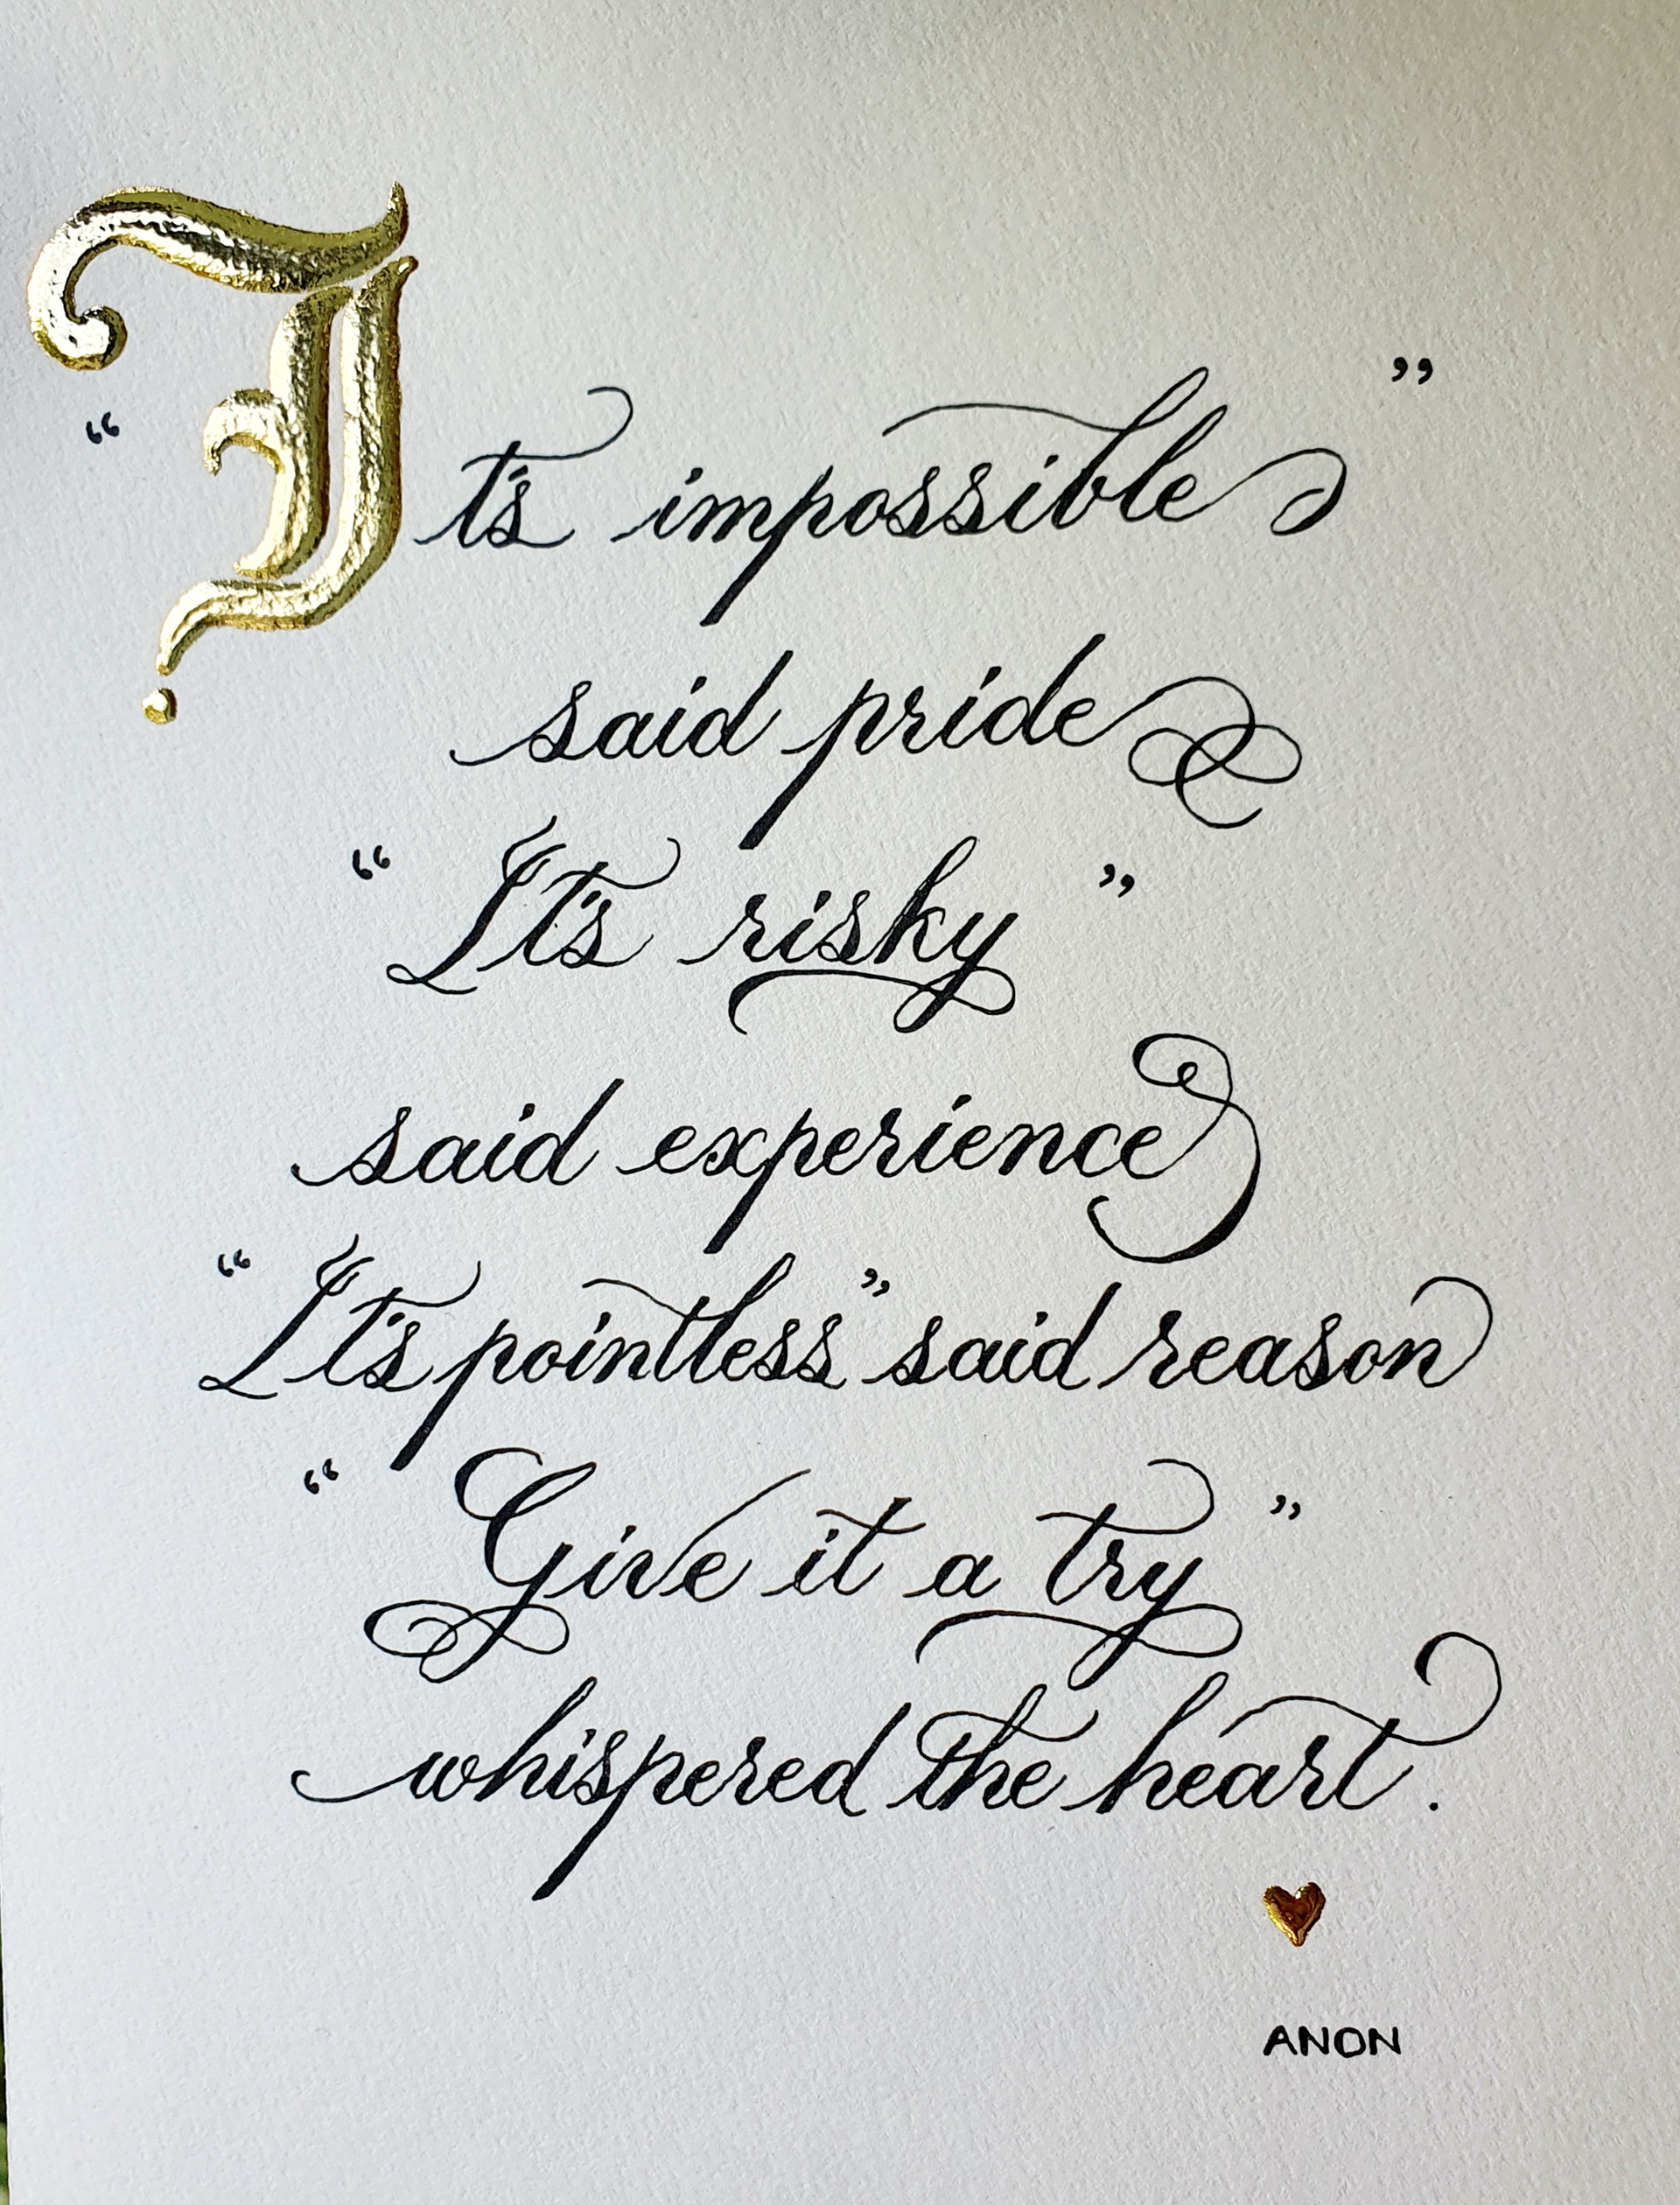 “It's impossible”
said pride
“It's risky”
said experience
“It's pointless” said reason
“Give it a try”
whispered the heart.
ANON